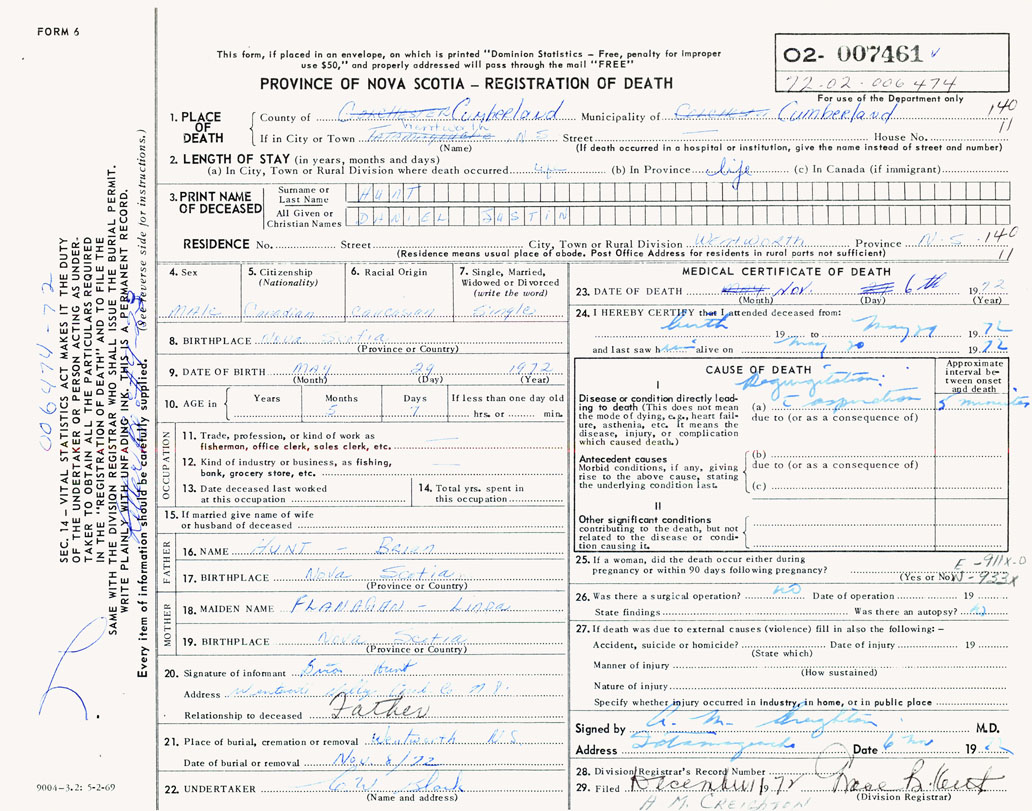 FORM 6
This form, if placed in an envelope, on which is printed "Dominion Statistics – Free, penalty for improper
use $50," and properly addressed will pass through the mail "FREE"
PROVINCE OF NOVA SCOTIA – REGISTRATION OF DEATH
02- 007461
72-02-006474
For use of the Department only
1. PLACE OF DEATH
County of COLCHESTER Cumberland Municipality of Cumberland 140
If in City or Town Tatamagouche Wentworth N S Street House No. 11
(Name) (If death occurred in a hospital or institution, give the name instead of street and number)
2. LENGTH OF STAY (in years, months and days)
(a) In City, Town or Rural Division where death occurred life (b) In Province life (c) In Canada (if immigrant)
3. PRINT NAME OF DECEASED
Surname or Last Name HUNT
All Given or Christian Names DANIEL JUSTIN
RESIDENCE No. Street City, Town or Rural Division Wentworth Province N.S. 140
(Residence means usual place of abode. Post Office Address for residents in rural parts not sufficient) 11
4. Sex
Male
5. Citizenship (Nationality)
Canadian
6. Racial Origin
Caucasian
7. Single, Married, Widowed or Divorced (write the word)
Single
8. BIRTHPLACE Nova Scotia
(Province or Country)
9. DATE OF BIRTH MAY 29 1972
(Month) (Day) (Year)
10. AGE in Years Months Days If less than one day old
5 7 hrs. or min.
OCCUPATION
11. Trade, profession, or kind of work as
fisherman, office clerk, sales clerk, etc.
12. Kind of industry or business, as fishing,
bank, grocery store, etc.
13. Date deceased last worked
at this occupation
14. Total yrs. spent in
this occupation
15. If married give name of wife
or husband of deceased
FATHER
16. NAME HUNT – Brian
17. BIRTHPLACE Nova Scotia
(Province or Country)
MOTHER
18. MAIDEN NAME FLANAGAN – Linda
19. BIRTHPLACE Nova Scotia
(Province or Country)
20. Signature of informant Brian Hunt
Address
Relationship to deceased Father
21. Place of burial, cremation or removal Wentworth N.S.
Date of burial or removal Nov. 8/72
22. UNDERTAKER
(Name and address)
MEDICAL CERTIFICATE OF DEATH
23. DATE OF DEATH Nov. 6th 1972
(Month) (Day) (Year)
24. I HEREBY CERTIFY that I attended deceased from:
birth 19 to May 29 1972
and last saw him alive on May 1972
CAUSE OF DEATH
Approximate interval between onset and death
I
Regurgitation
Disease or condition directly leading to death (This does not mean the mode of dying, e.g., heart failure, asthenia, etc. It means the disease, injury, or complication which caused death.)
(a) c aspiration 5 minutes
due to (or as a consequence of)
Antecedent causes
Morbid conditions, if any, giving rise to the above cause, stating the underlying condition last.
(b)
due to (or as a consequence of)
(c)
II
Other significant conditions
contributing to the death, but not related to the disease or condition causing it.
25. If a woman, did the death occur either during
pregnancy or within 90 days following pregnancy?
(Yes or No)
E-911X-0
N-933X
26. Was there a surgical operation? NO Date of operation 19
State findings Was there an autopsy? No
27. If death was due to external causes (violence) fill in also the following: –
Accident, suicide or homicide? Date of injury 19
(State which)
Manner of injury
(How sustained)
Nature of injury
Specify whether injury occurred in industry, in home, or in public place
Signed by A. M. Creighton M.D.
Address Tatamagouche Date 6 Nov 19
28. Division Registrar's Record Number
29. Filed December 1 1972
(Division Registrar)
H M. CREIGHTON
SEC. 14 – VITAL STATISTICS ACT MAKES IT THE DUTY
OF THE UNDERTAKER OR PERSON ACTING AS UNDER-
TAKER TO OBTAIN ALL THE PARTICULARS REQUIRED
IN THE "REGISTRATION OF DEATH" AND TO FILE THE
SAME WITH THE DIVISION REGISTRAR WHO SHALL ISSUE THE BURIAL PERMIT.
WRITE PLAINLY WITH UNFADING INK. THIS IS A PERMANENT RECORD.
Every item of information should be carefully supplied. (See reverse side for instructions.)
006474-72
9004-3.2: 5-2-69